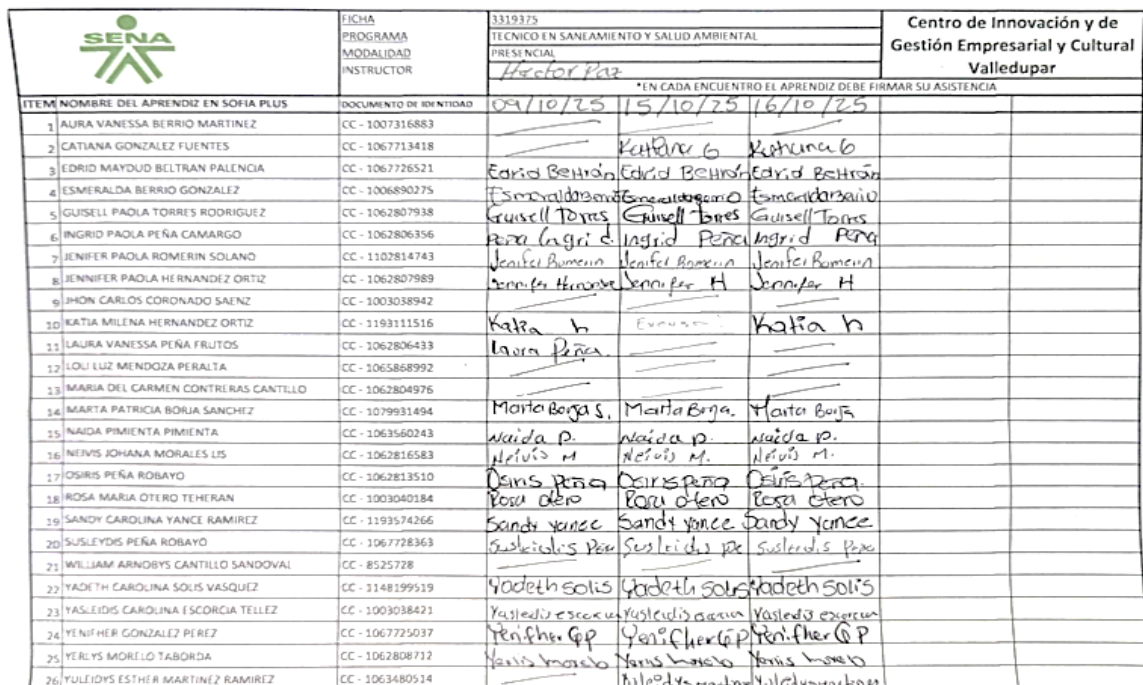 SENA
FICHA 3319375
PROGRAMA TECNICO EN SANEAMIENTO Y SALUD AMBIENTAL
MODALIDAD PRESENCIAL
INSTRUCTOR Hector Paz
Centro de Innovación y de
Gestión Empresarial y Cultural
Valledupar
*EN CADA ENCUENTRO EL APRENDIZ DEBE FIRMAR SU ASISTENCIA
ITEM NOMBRE DEL APRENDIZ EN SOFIA PLUS DOCUMENTO DE IDENTIDAD 09/10/25 15/10/25 16/10/25
1 AURA VANESSA BERRIO MARTINEZ CC - 1007316883
2 CATIANA GONZALEZ FUENTES CC - 1067713418
3 EDRID MAYDUD BELTRAN PALENCIA CC - 1067726521 Edrid Beltrán Edrid Beltrán Edrid Beltrán
4 ESMERALDA BERRIO GONZALEZ CC - 1006890275
5 GUISELL PAOLA TORRES RODRIGUEZ CC - 1062807938 Guisell Torres Guisell Torres Guisell Torres
6 INGRID PAOLA PEÑA CAMARGO CC - 1062806356 Peña Ingrid Ingrid Peña Ingrid Peña
7 JENIFER PAOLA ROMERIN SOLANO CC - 1102814743 Jenifer Romerin Jenifer Romerin Jenifer Romerin
8 JENNIFER PAOLA HERNANDEZ ORTIZ CC - 1062807989 Jennifer H Jennifer H
9 JHON CARLOS CORONADO SAENZ CC - 1003038942
10 KATIA MILENA HERNANDEZ ORTIZ CC - 1193111516 Katia h Katia h
11 LAURA VANESSA PEÑA FRUTOS CC - 1062806433 laura Peña.
12 LOLI LUZ MENDOZA PERALTA CC - 1065868992
13 MARIA DEL CARMEN CONTRERAS CANTILLO CC - 1062804976
14 MARTA PATRICIA BORJA SANCHEZ CC - 1079931494 Marta Borja S. Marta Borja. Marta Borja
15 NAIDA PIMIENTA PIMIENTA CC - 1063560243 Naida P. Naida P. Naida P.
16 NEIVIS JOHANA MORALES LIS CC - 1062816583 Neivis M Neivis M. Neivis M.
17 OSIRIS PEÑA ROBAYO CC - 1062813510 Osiris Peña Osiris Peña Osiris Peña.
18 ROSA MARIA OTERO TEHERAN CC - 1003040184 Rosa otero Rosa otero Rosa otero
19 SANDY CAROLINA YANCE RAMIREZ CC - 1193574266 Sandy Yance Sandy Yance Sandy Yance
20 SUSLEYDIS PEÑA ROBAYO CC - 1067728363
21 WILLIAM ARNOBYS CANTILLO SANDOVAL CC - 8525728
22 YADETH CAROLINA SOLIS VASQUEZ CC - 1148199519 Yadeth solis Yadeth solis Yadeth solis
23 YASLEIDIS CAROLINA ESCORCIA TELLEZ CC - 1003038421
24 YENIFHER GONZALEZ PEREZ CC - 1067725037 Yenifher G P Yenifher G P Yenifher G P
25 YERLYS MORELO TABORDA CC - 1062808712
26 YULEIDYS ESTHER MARTINEZ RAMIREZ CC - 1063480514